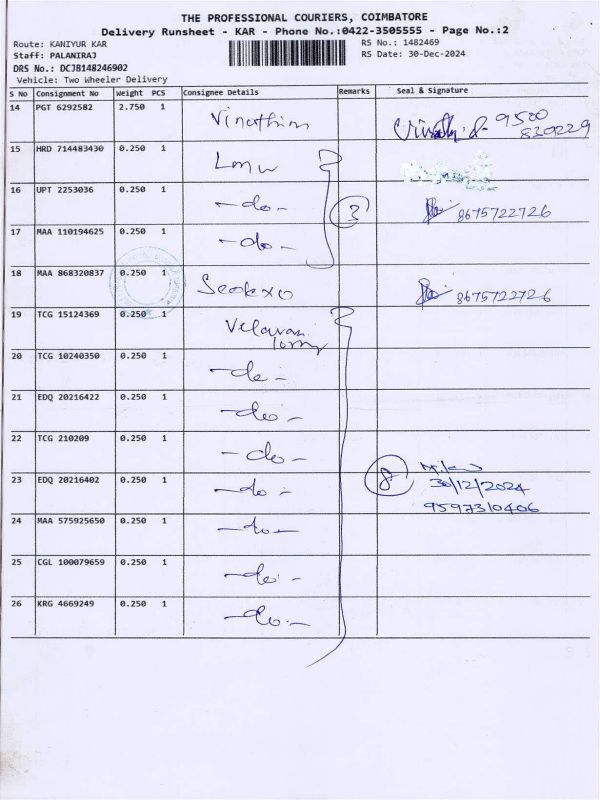 THE PROFESSIONAL COURIERS, COIMBATORE
Delivery Runsheet - KAR - Phone No.:0422-3505555 - Page No.:2
Route: KANIYUR KAR RS No.: 1482469
Staff: PALANIRAJ RS Date: 30-Dec-2024
DRS No.: DCJB148246902
Vehicle: Two Wheeler Delivery
S No Consignment No Weight PCS Consignee Details Remarks Seal & Signature
14 PGT 6292582 2.750 1 9500
829229
15 HRD 714483430 0.250 1 Lmw
16 UPT 2253036 0.250 1 -do- 3 8675722726
17 MAA 110194625 0.250 1 -do-
18 MAA 868320837 0.250 1 8675722726
19 TCG 15124369 0.250 1 Velavan
20 TCG 10240350 0.250 1 -do-
21 EDQ 20216422 0.250 1 -do-
22 TCG 210209 0.250 1 -do-
23 EDQ 20216402 0.250 1 -do- 8 30/12/2024
9597310406
24 MAA 575925650 0.250 1 -do-
25 CGL 100079659 0.250 1 -do-
26 KRG 4669249 0.250 1 -do-